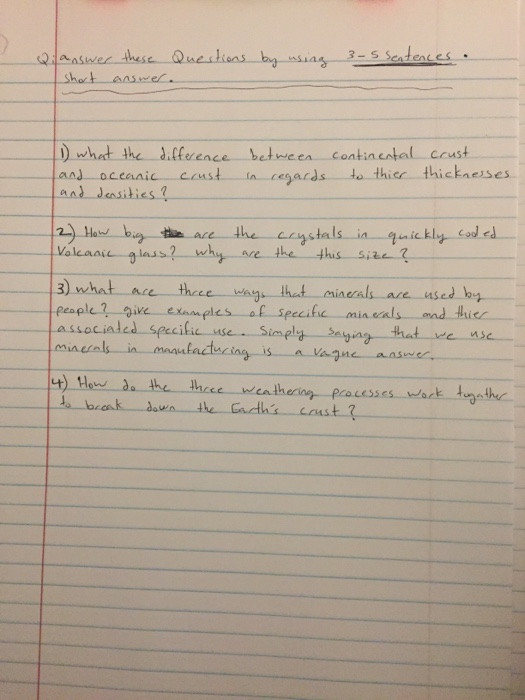 Q: answer these Questions by using 3-5 Sentences.
Short answer.
1) what the difference between continental crust
and oceanic crust in regards to thier thicknesses
and densities?
2) How big are the crystals in quickly cooled
Volcanic glass? why are the this size?
3) what are three ways that minerals are used by
people? give examples of specific minerals and thier
associated specific use. Simply saying that we use
minerals in manufacturing is a vague answer.
4) How do the three weathering processes work togather
to break down the Earth's crust?